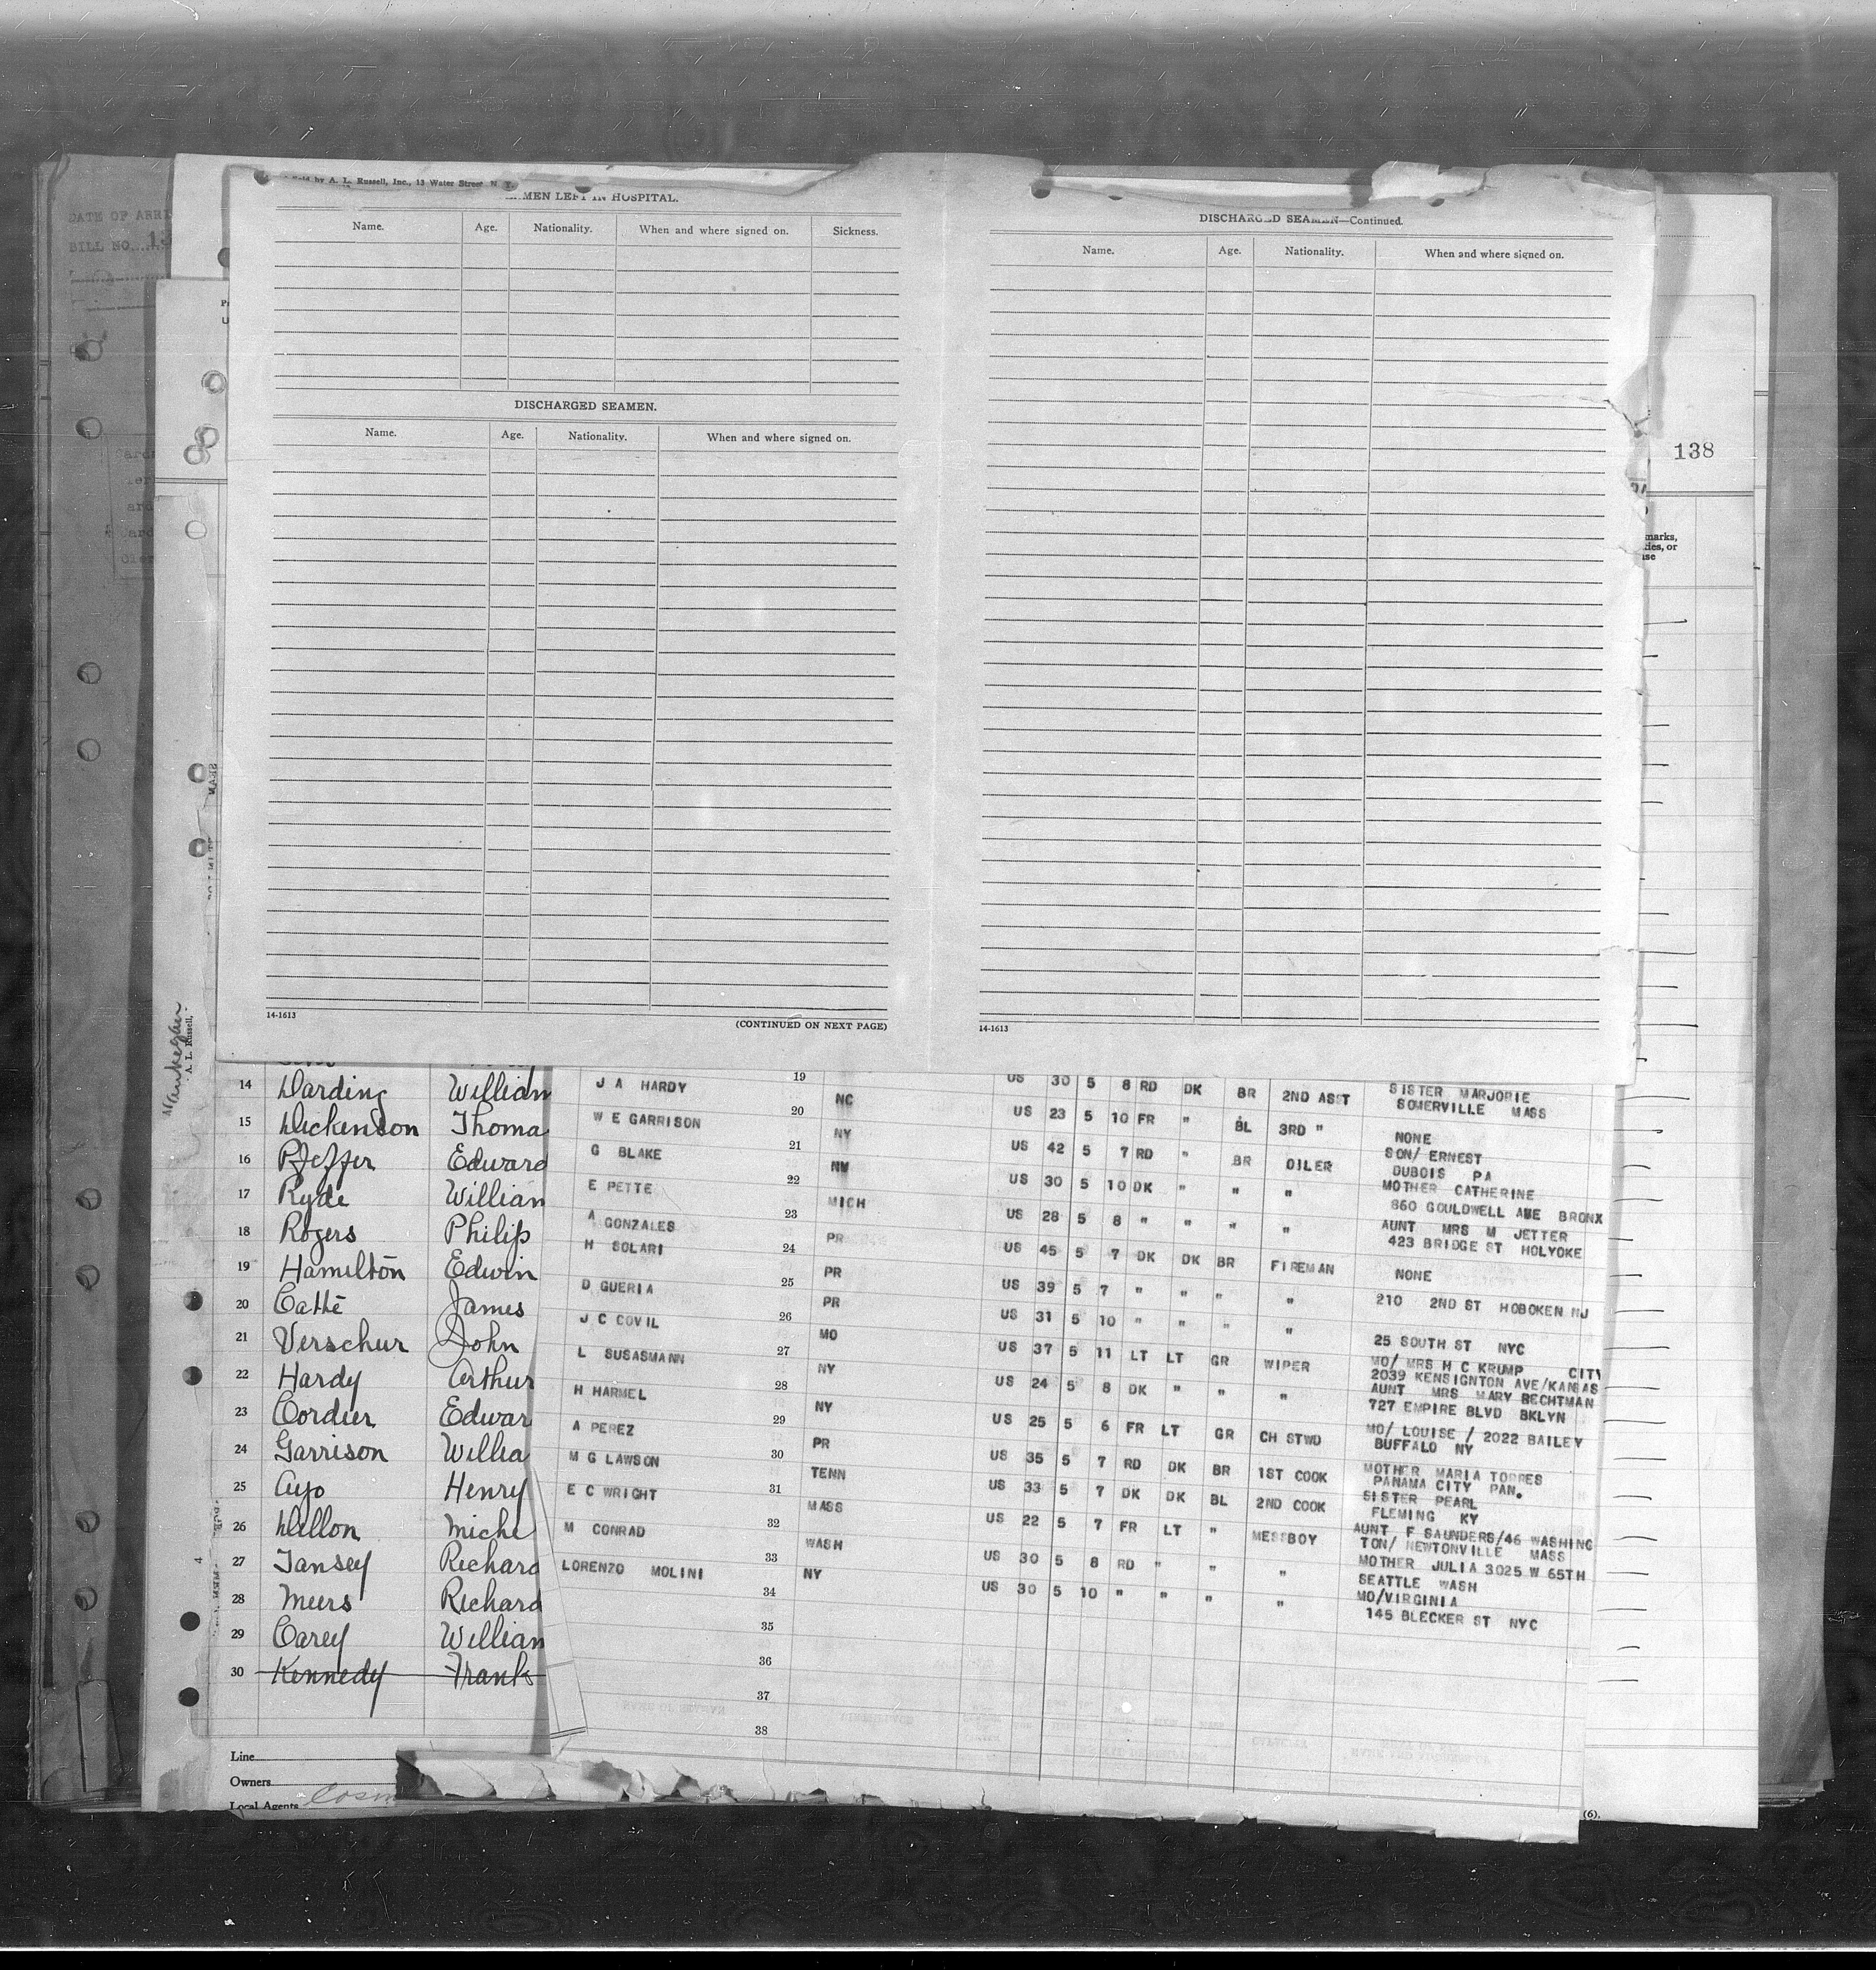 DATE OF ARRI
BILL NO.
by A. L. Russell, Inc., 13 Water Street N. Y.
MEN LEFT IN HOSPITAL.
Name. Age. Nationality. When and where signed on. Sickness.
DISCHARGED SEAMEN.
Name. Age. Nationality. When and where signed on.
14-1613
(CONTINUED ON NEXT PAGE)
DISCHARGED SEAMEN—Continued.
Name. Age. Nationality. When and where signed on.
14-1613
138
marks,
ties, or
Waukegan
A. L. Russell,
14 Harding William
15 Dickenson Thoma
16 Pfeffer Edward
17 Ryde William
18 Rogers Philip
19 Hamilton Edwin
20 Cathe James
21 Verschur John
22 Hardy Arthur
23 Cordier Edwar
24 Garrison Willia
25 Ayo Henry
26 Dillon Miche
27 Tansey Richard
28 Meers Richard
29 Carey William
30 Kennedy Frank
Line
Owners
Local Agents Cosm
J A HARDY 19 NC US 30 5 8 RD DK BR 2ND ASST SISTER MARJORIE
SOMERVILLE MASS
W E GARRISON 20 NY US 23 5 10 FR " BL 3RD " NONE
G BLAKE 21 NM US 42 5 7 RD " BR OILER SON/ ERNEST
DUBOIS PA
E PETTE 22 MICH US 30 5 10 DK " " " MOTHER CATHERINE
860 GOULDWELL AVE BRONX
A GONZALES 23 PR US 28 5 8 " " " " AUNT MRS M JETTER
423 BRIDGE ST HOLYOKE
H SOLARI 24 PR US 45 5 7 DK DK BR FIREMAN NONE
D GUERIA 25 PR US 39 5 7 " " " " 210 2ND ST HOBOKEN NJ
J C COVIL 26 MO US 31 5 10 " " " " 25 SOUTH ST NYC
L SUSASMANN 27 NY US 37 5 11 LT LT GR WIPER MO/ MRS H C KRUMP CITY
2039 KENSIGNTON AVE/KANSAS
H HARMEL 28 NY US 24 5 8 DK " " " AUNT MRS MARY BECHTMAN
727 EMPIRE BLVD BKLYN
A PEREZ 29 PR US 25 5 6 FR LT GR CH STWD MO/ LOUISE / 2022 BAILEY
BUFFALO NY
M G LAWSON 30 TENN US 35 5 7 RD DK BR 1ST COOK MOTHER MARIA TORRES
PANAMA CITY PAN.
E C WRIGHT 31 MASS US 33 5 7 DK DK BL 2ND COOK SISTER PEARL
FLEMING KY
M CONRAD 32 WASH US 22 5 7 FR LT " MESSBOY AUNT F SAUNDERS/46 WASHING
TON/ NEWTONVILLE MASS
LORENZO MOLINI 33 NY US 30 5 8 RD " " " MOTHER JULIA 3025 W 65TH
SEATTLE WASH
34 US 30 5 10 " " " " MO/VIRGINIA
145 BLECKER ST NYC
35
36
37
38
(6).